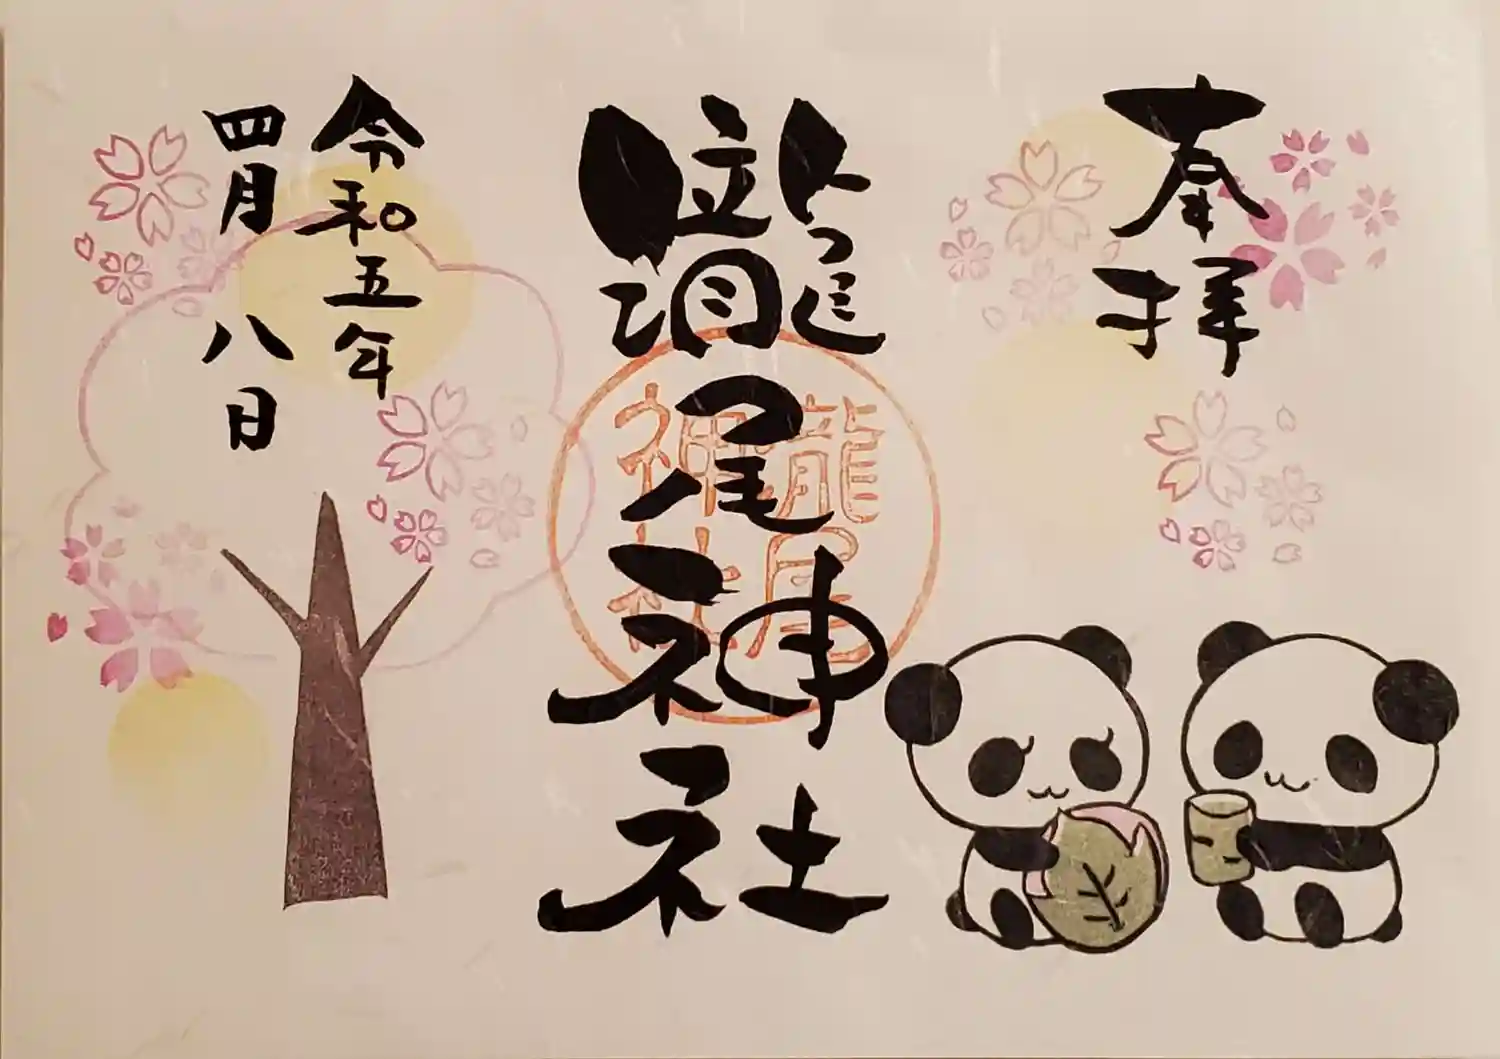 奉拝
瀧尾神社
龍尾
神社
令和五年
四月八日